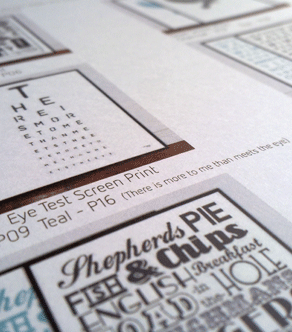 P06
T
H E
R E I
S M O R
E T O M E
T H A N M E
Eye Test Screen Print
P09 Teal - P16 (There is more to me than meets the eye)
Shepherds PIE
FISH & Chips
ENGLISH Breakfast
TOAD in the HOLE